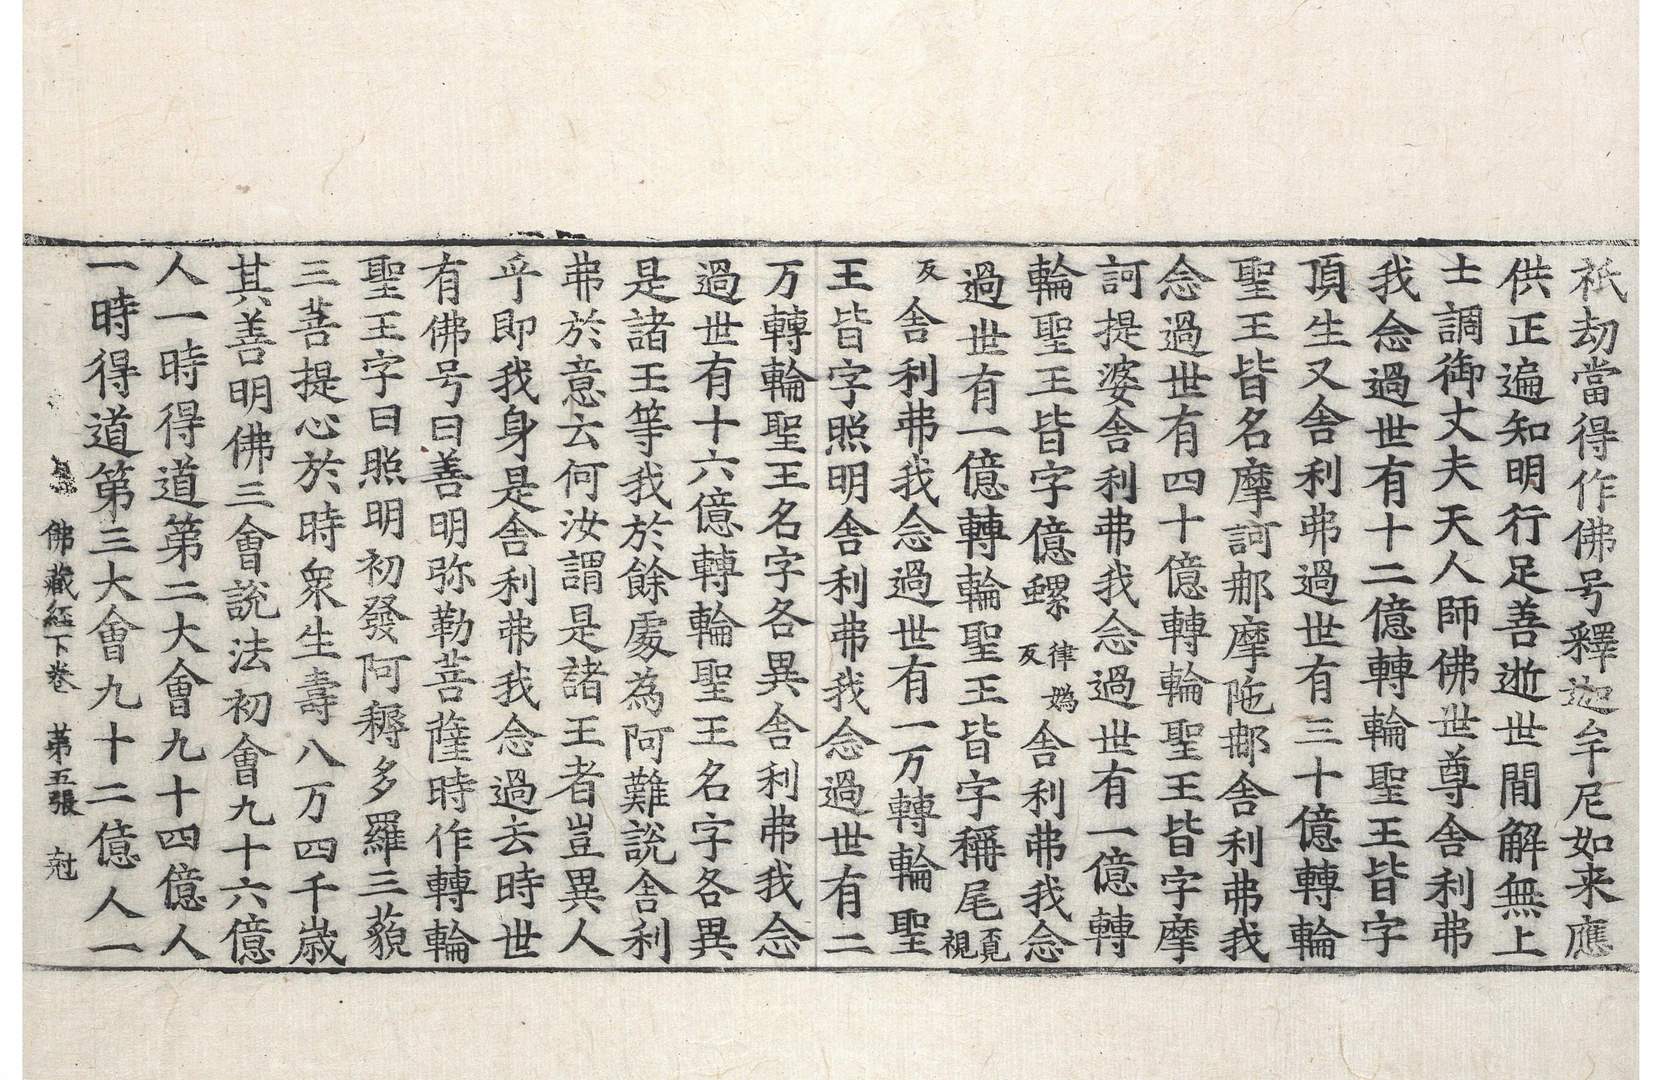 祇劫當得作佛号釋迦牟尼如来應
供正遍知明行足善逝世間解無上
士調御丈夫天人師佛世尊舍利弗
我念過世有十二億轉輪聖王皆字
頂生又舍利弗過世有三十億轉輪
聖王皆名摩訶那摩陁那舍利弗我
念過世有四十億轉輪聖王皆字摩
訶提婆舍利弗我念過世有一億轉
輪聖王皆字億螺律媯反舍利弗我念
過世有一億轉輪聖王皆字稱尾覓視
反舍利弗我念過世有一万轉輪聖
王皆字照明舍利弗我念過世有二
万轉輪聖王名字各異舍利弗我念
過世有十六億轉輪聖王名字各異
是諸王等我於餘處為阿難說舍利
弗於意云何汝謂是諸王者豈異人
乎即我身是舍利弗我念過去時世
有佛号曰善明弥勒菩薩時作轉輪
聖王字曰照明初發阿耨多羅三藐
三菩提心於時衆生壽八万四千歲
其善明佛三會說法初會九十六億
人一時得道第二大會九十四億人
一時得道第三大會九十二億人一
佛藏經下卷 第五張 尅